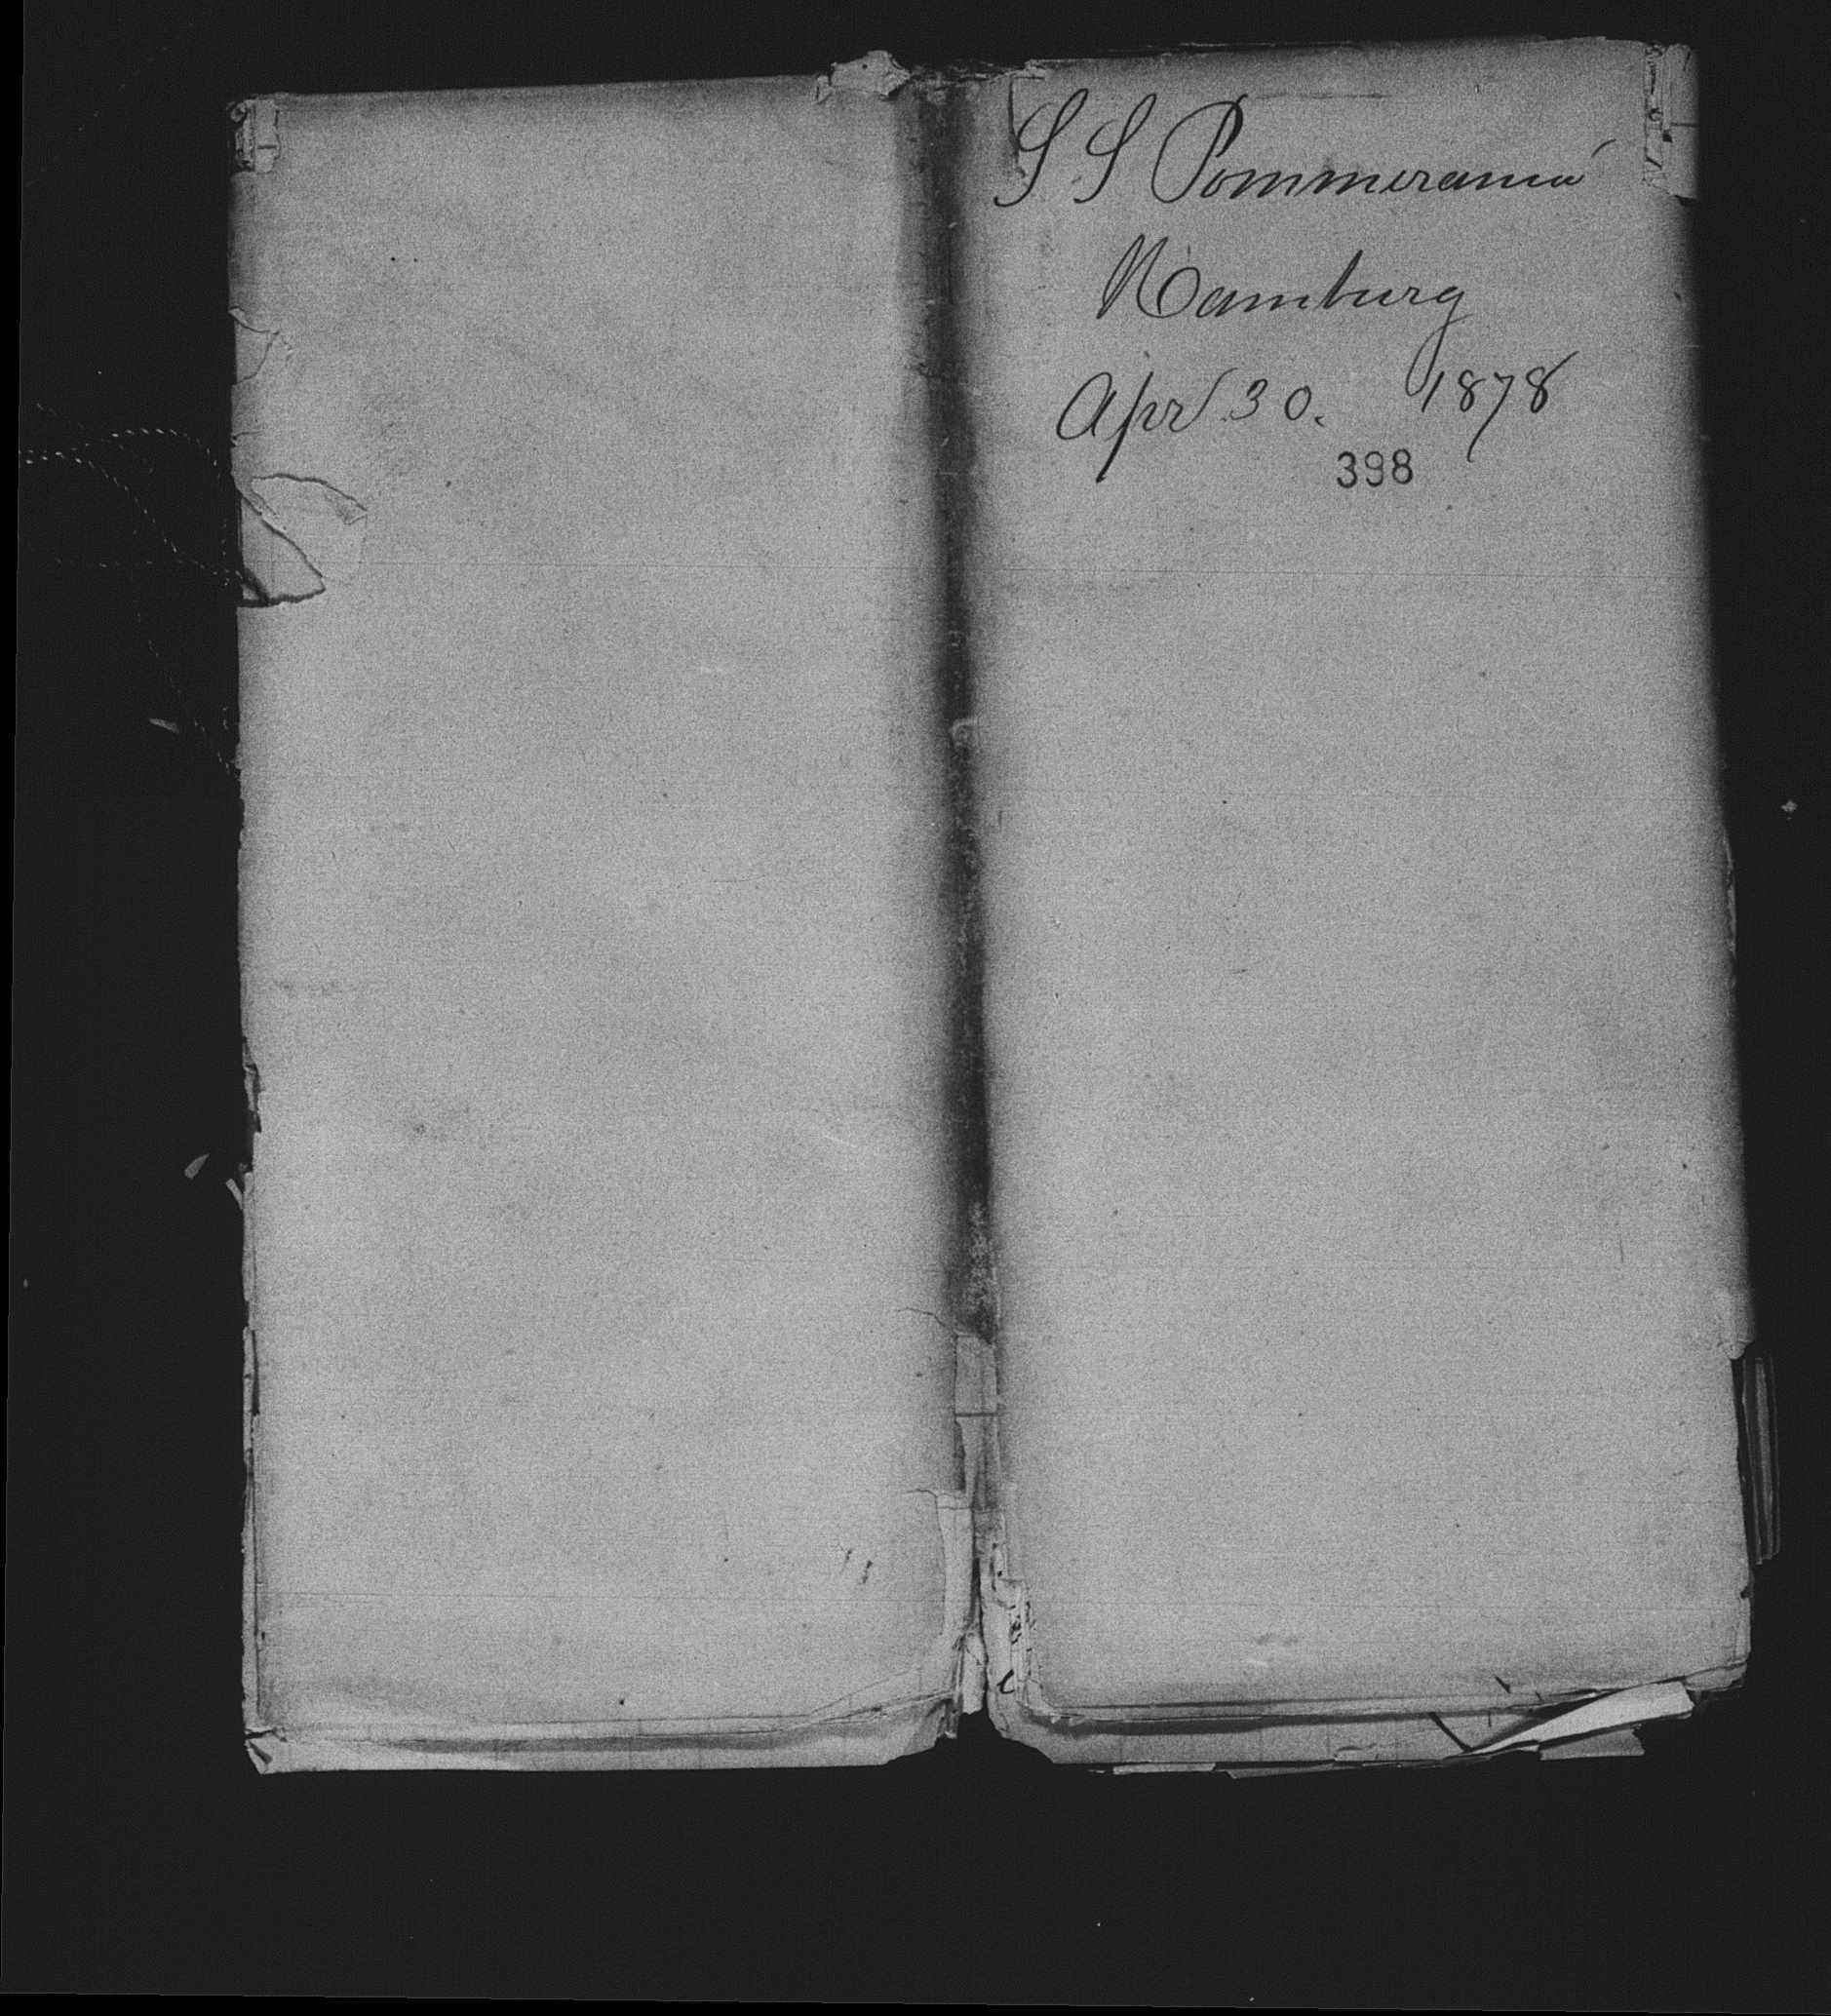 S S Pommerania
Hamburg
Apr 30. 1878
398